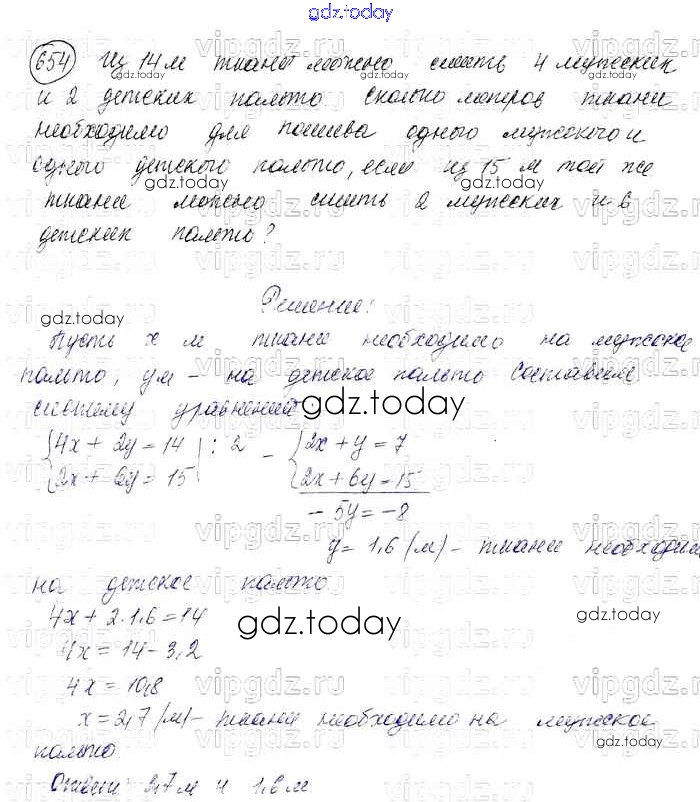 gdz.today
654 Из 14 м ткани можно сшить 4 мужских
gdz.today
и 2 детских пальто сколько метров ткани
необходимо для пошива одного мужского и
одного детского пальто, если из 15 м той же
gdz.today gdz.today
ткани можно сшить 2 мужских и 6
детских пальто?
Решение:
gdz.today
Пусть x м ткани необходимо на мужское
пальто, y м - на детское пальто составим
систему уравнений: gdz.today
{4x + 2y = 14 | : 2 - {2x + y = 7
{2x + 6y = 15 {2x + 6y = 15
-5y = -8
y = 1,6 (м) - ткани необходимо
на детское пальто.
4x + 2 · 1,6 = 14
gdz.today
4x = 14 - 3,2
4x = 10,8
x = 2,7 (м) - ткани необходимо на мужское
gdz.today
пальто.
Ответ: 2,7 м и 1,6 м.